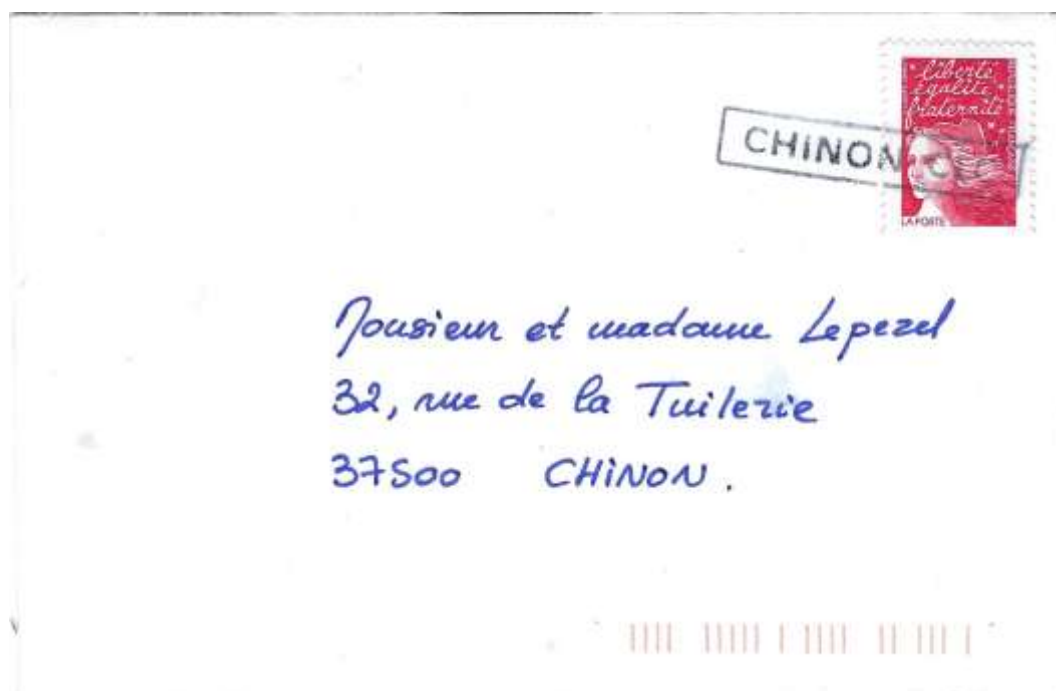 liberté
égalité
fraternité
CHINON
LA POSTE
Monsieur et madame Lepezel
32, rue de la Tuilerie
37500 CHiNON.